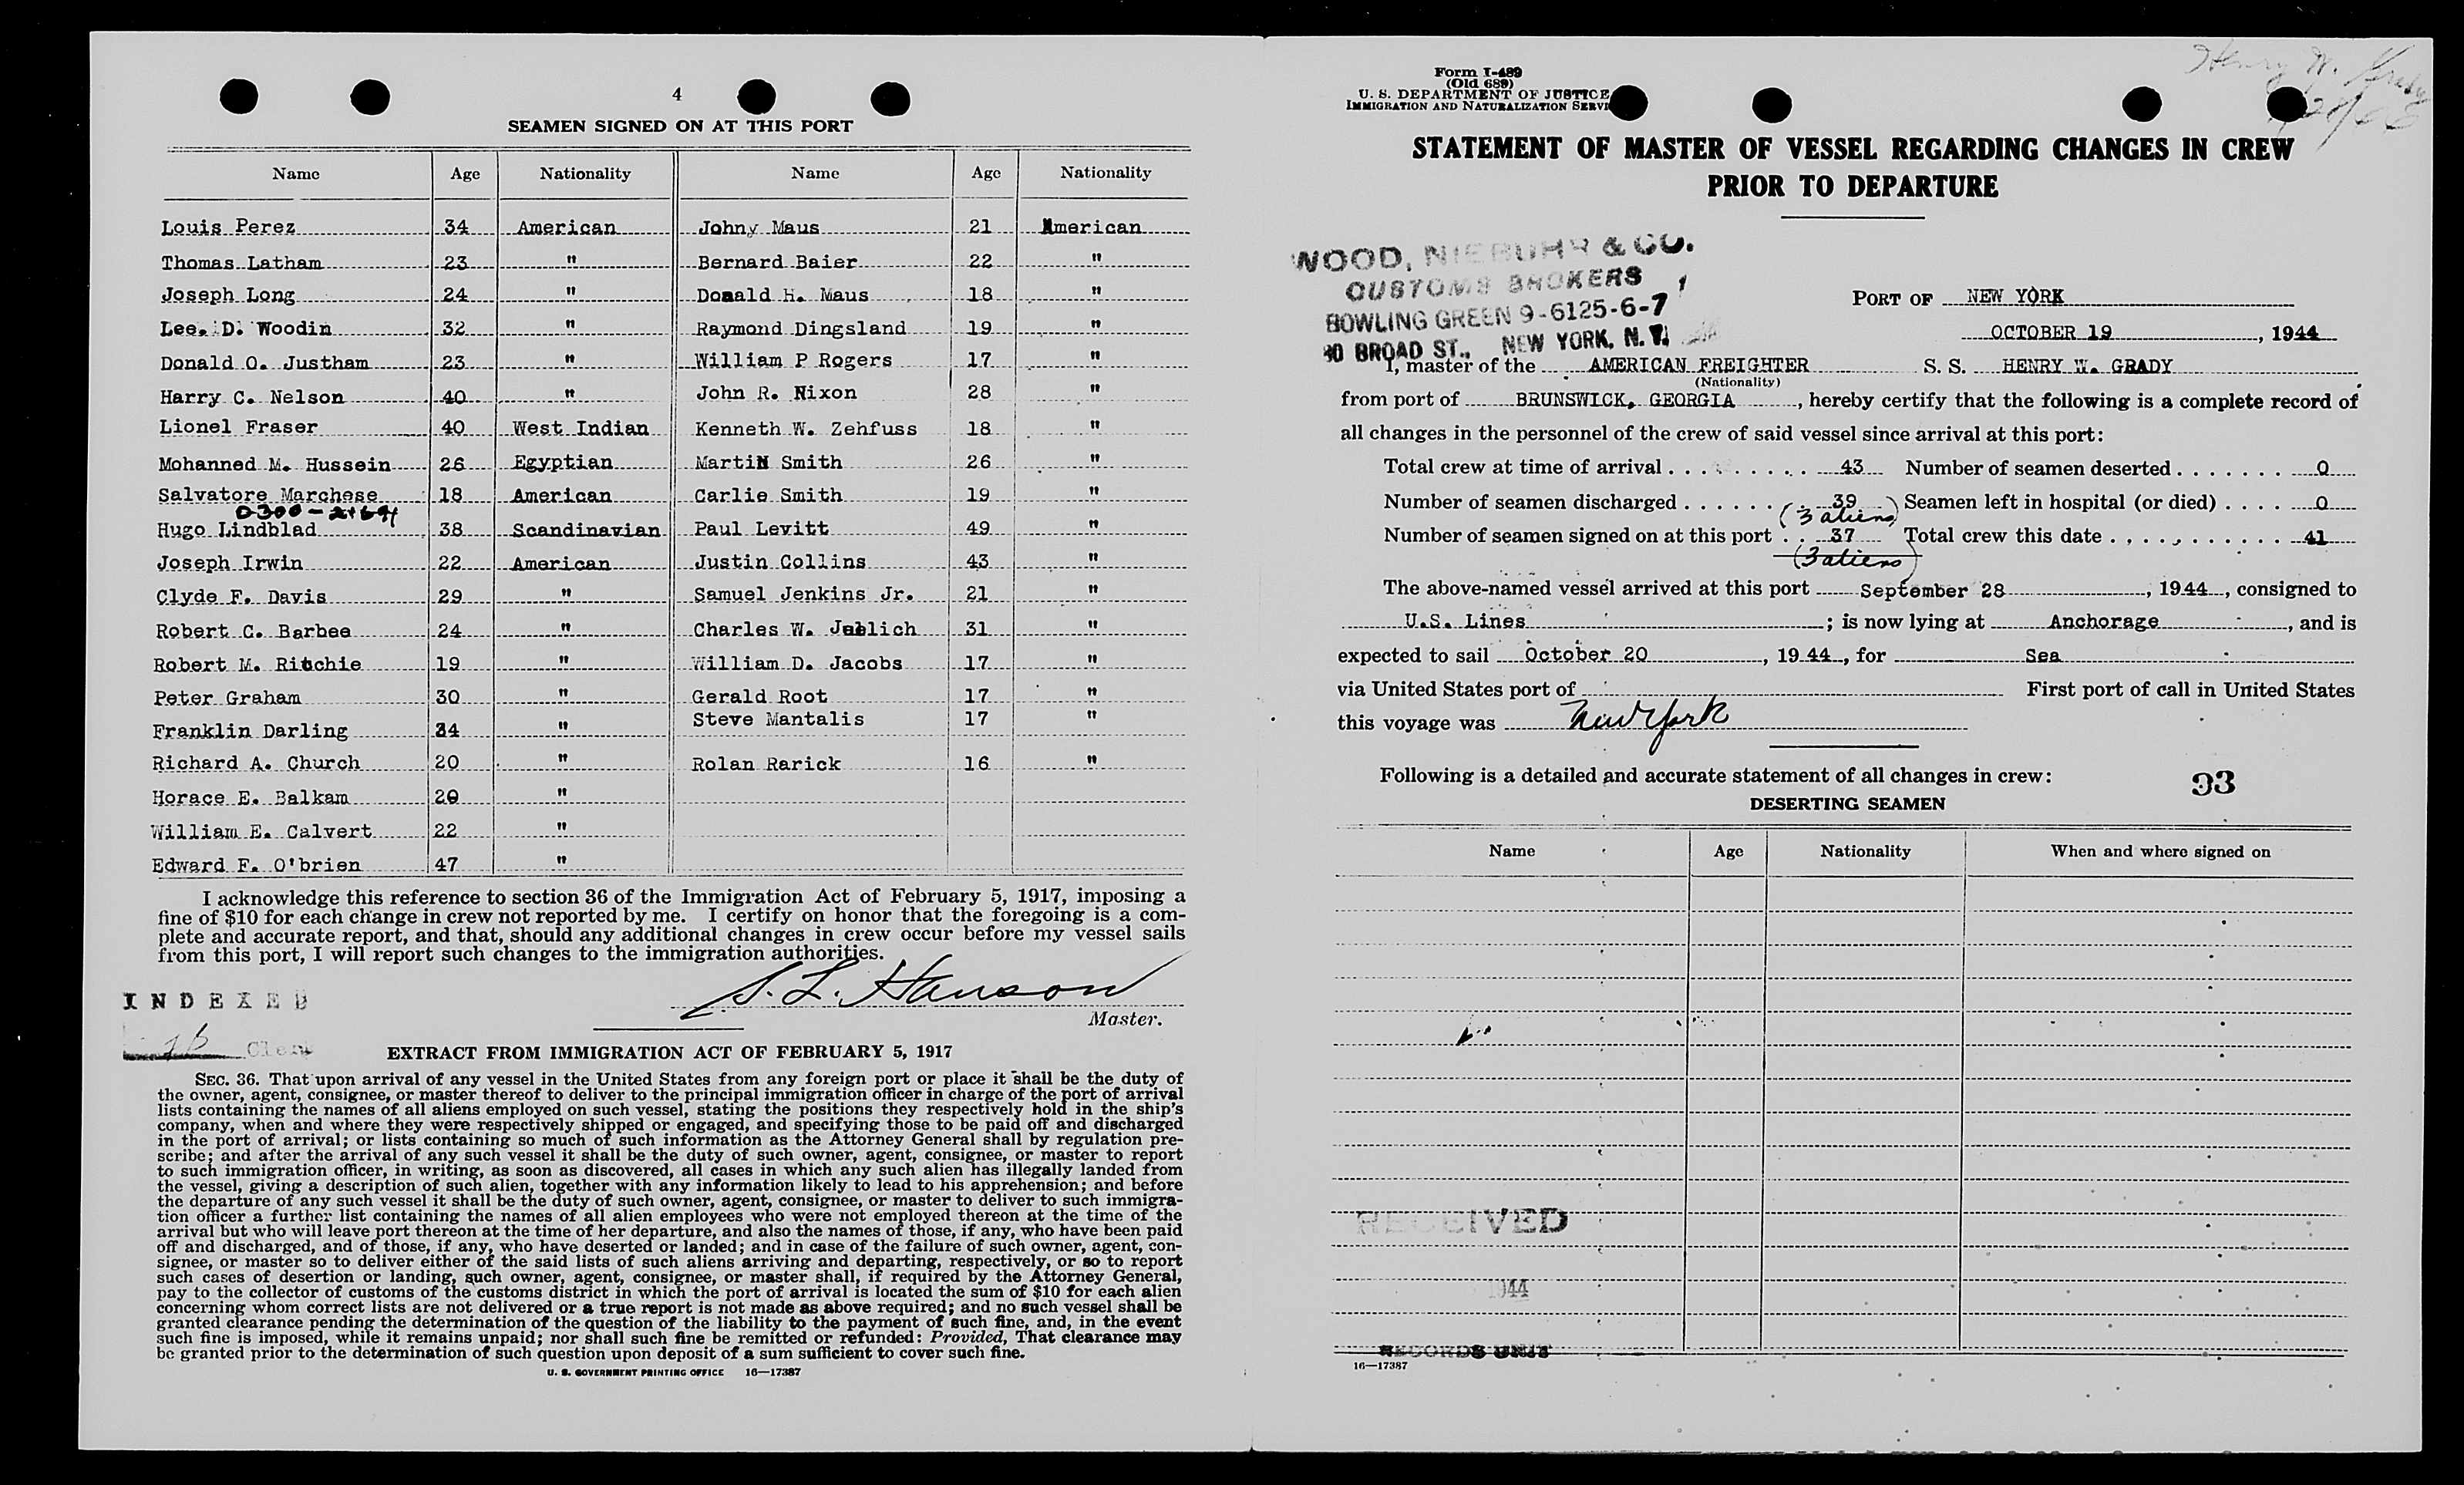 4
SEAMEN SIGNED ON AT THIS PORT
Name Age Nationality Name Age Nationality
Louis Perez 34 American Johny Maus 21 American
Thomas Latham 23 " Bernard Baier 22 "
Joseph Long 24 " Donald H. Maus 18 "
Lee. D. Woodin 32 " Raymond Dingsland 19 "
Donald O. Justham 23 " William P Rogers 17 "
Harry C. Nelson 40 " John R. Nixon 28 "
Lionel Fraser 40 West Indian Kenneth W. Zehfuss 18 "
Mohanned M. Hussein 26 Egyptian Martin Smith 26 "
Salvatore Marchese 18 American Carlie Smith 19 "
Hugo Lindblad 38 Scandinavian Paul Levitt 49 "
Joseph Irwin 22 American Justin Collins 43 "
Clyde F. Davis 29 " Samuel Jenkins Jr. 21 "
Robert C. Barbee 24 " Charles W. 31 "
Robert M. Ritchie 19 " William D. Jacobs 17 "
Peter Graham 30 " Gerald Root 17 "
Franklin Darling 34 " Steve Mantalis 17 "
Richard A. Church 20 " Rolan Rarick 16 "
Horace E. Balkam 20 "
William E. Calvert 22 "
Edward F. O'brien 47 "
I acknowledge this reference to section 36 of the Immigration Act of February 5, 1917, imposing a
fine of $10 for each change in crew not reported by me. I certify on honor that the foregoing is a com-
plete and accurate report, and that, should any additional changes in crew occur before my vessel sails
from this port, I will report such changes to the immigration authorities.
S. L. Hanson
Master.
INDEXED
Clerk
EXTRACT FROM IMMIGRATION ACT OF FEBRUARY 5, 1917
SEC. 36. That upon arrival of any vessel in the United States from any foreign port or place it shall be the duty of
the owner, agent, consignee, or master thereof to deliver to the principal immigration officer in charge of the port of arrival
lists containing the names of all aliens employed on such vessel, stating the positions they respectively hold in the ship's
company, when and where they were respectively shipped or engaged, and specifying those to be paid off and discharged
in the port of arrival; or lists containing so much of such information as the Attorney General shall by regulation pre-
scribe; and after the arrival of any such vessel it shall be the duty of such owner, agent, consignee, or master to report
to such immigration officer, in writing, as soon as discovered, all cases in which any such alien has illegally landed from
the vessel, giving a description of such alien, together with any information likely to lead to his apprehension; and before
the departure of any such vessel it shall be the duty of such owner, agent, consignee, or master to deliver to such immigra-
tion officer a further list containing the names of all alien employees who were not employed thereon at the time of the
arrival but who will leave port thereon at the time of her departure, and also the names of those, if any, who have been paid
off and discharged, and of those, if any, who have deserted or landed; and in case of the failure of such owner, agent, con-
signee, or master so to deliver either of the said lists of such aliens arriving and departing, respectively, or so to report
such cases of desertion or landing, such owner, agent, consignee, or master shall, if required by the Attorney General,
pay to the collector of customs of the customs district in which the port of arrival is located the sum of $10 for each alien
concerning whom correct lists are not delivered or a true report is not made as above required; and no such vessel shall be
granted clearance pending the determination of the question of the liability to the payment of such fine, and, in the event
such fine is imposed, while it remains unpaid; nor shall such fine be remitted or refunded: Provided, That clearance may
be granted prior to the determination of such question upon deposit of a sum sufficient to cover such fine.
U. S. GOVERNMENT PRINTING OFFICE 16—17387
Henry W. Grady
Form I-489
(Old 689)
U. S. DEPARTMENT OF JUSTICE
IMMIGRATION AND NATURALIZATION SERVI
STATEMENT OF MASTER OF VESSEL REGARDING CHANGES IN CREW
PRIOR TO DEPARTURE
WOOD, NIEBUHR & CO.
CUSTOMS BROKERS
BOWLING GREEN 9-6125-6-7
80 BROAD ST., NEW YORK, N. Y.
PORT OF NEW YORK
OCTOBER 19, 1944
I, master of the AMERICAN FREIGHTER S. S. HENRY W. GRADY
(Nationality)
from port of BRUNSWICK, GEORGIA, hereby certify that the following is a complete record of
all changes in the personnel of the crew of said vessel since arrival at this port:
Total crew at time of arrival 43 Number of seamen deserted 0
Number of seamen discharged 39 Seamen left in hospital (or died) 0
(3 aliens)
Number of seamen signed on at this port 37 Total crew this date 41
(3 aliens)
The above-named vessel arrived at this port September 28, 1944, consigned to
U.S. Lines; is now lying at Anchorage, and is
expected to sail October 20, 1944, for Sea
via United States port of First port of call in United States
this voyage was New York
Following is a detailed and accurate statement of all changes in crew:
93
DESERTING SEAMEN
Name Age Nationality When and where signed on
RECEIVED
1944
RECORDS UNIT
16—17387